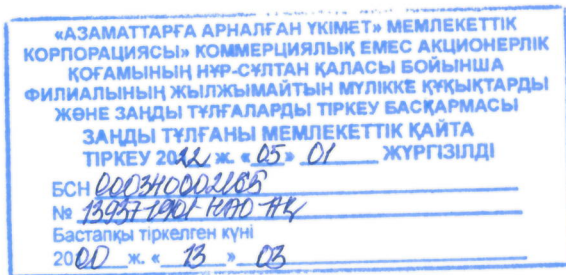 «АЗАМАТТАРҒА АРНАЛҒАН ҮКІМЕТ» МЕМЛЕКЕТТІК
КОРПОРАЦИЯСЫ» КОММЕРЦИЯЛЫҚ ЕМЕС АКЦИОНЕРЛІК
ҚОҒАМЫНЫҢ НҰР-СҰЛТАН ҚАЛАСЫ БОЙЫНША
ФИЛИАЛЫНЫҢ ЖЫЛЖЫМАЙТЫН МҮЛІККЕ ҚҰҚЫҚТАРДЫ
ЖӘНЕ ЗАҢДЫ ТҰЛҒАЛАРДЫ ТІРКЕУ БАСҚАРМАСЫ
ЗАҢДЫ ТҰЛҒАНЫ МЕМЛЕКЕТТІК ҚАЙТА
ТІРКЕУ 2022 ж. «05» 01 ЖҮРГІЗІЛДІ
БСН 000340002165
№ 13937-1901-НАО-АҚ
Бастапқы тіркелген күні
2000 ж. « 13 » 03